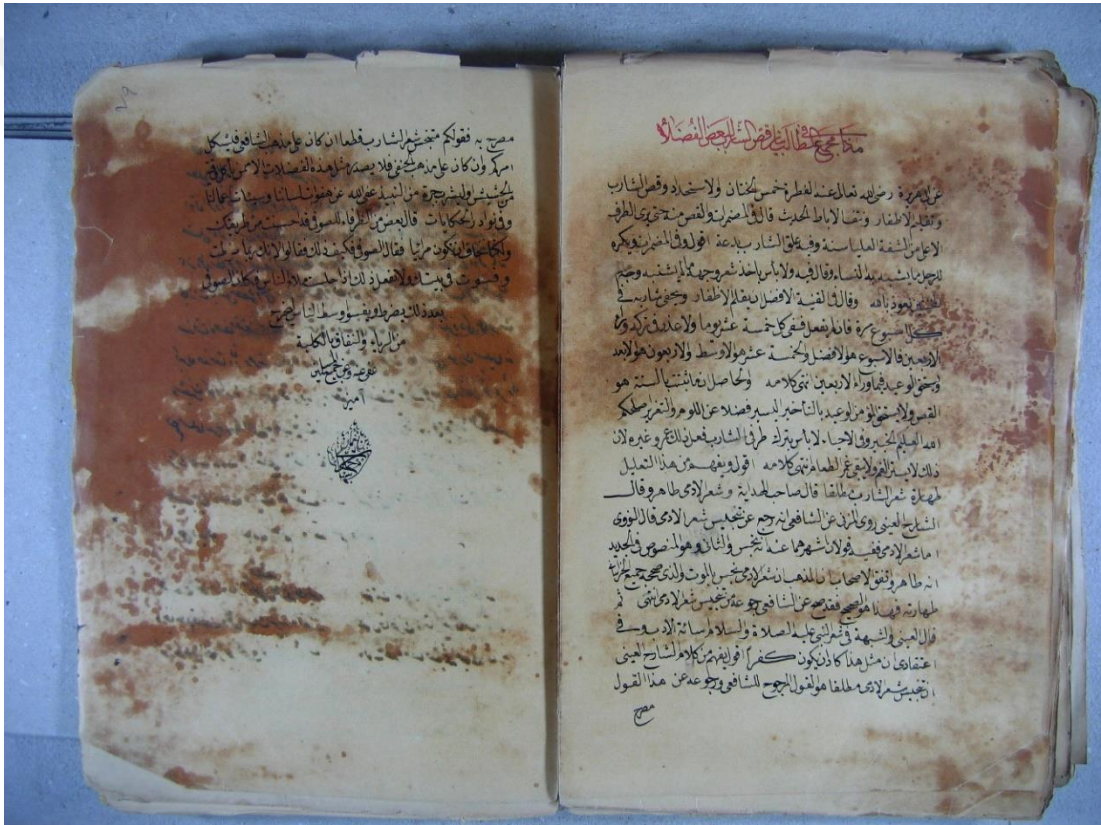 هذا مجمع المطالب في قص الشارب لبعض الفضلاء
عن ابي هريرة رضى الله تعالى عنه الفطرة خمس الختان والاستحداد وقص الشارب
وتقليم الاظفار ونتف الاباط الحديث قال في المضمرات والقص منه حتى يوازى الطرف
الاعلى من الشفة العليا سنة وفيه حلق الشارب بدعة اقول وفي المضمرات ويكره
للرجل ما يشبه به النساء وقال فيه ولا بأس باخذ شعر وجهه
نعوذ بالله وقال في القنية الافضل ان يقلم الاظفار ويحفى شاربه في
كل اسبوع مرة فان لم يفعل ففى كل خمسة عشر يوما ولا عذر في تركه وراء
الاربعين فالاسبوع هو الافضل والخمسة عشر هو الاوسط والاربعون هو الابعد
ويستحق الوعيد فيما وراء الاربعين انتهى كلامه والحاصل ان ما ثبت بالسنة هو
القص ولا يستحق المؤمن الوعيد بالتأخير اليسير فضلا عن اللوم والتعزير
الله العليم الخبير وفى الاحياء لا بأس بترك طرفى الشارب فعل ذلك عمر وغيره لان
ذلك لا يستر الفم ولا يبقى غمر الطعام انتهى كلامه اقول ويفهم من هذا التعليل
طهارة شعر الشارب مطلقا قال صاحب الهداية وشعر الادمى طاهر وقال
الشارح العينى روى المزنى عن الشافعى انه رجع عن تنجيس شعر الادمى قال النووى
اما شعر الادمى ففيه قولان اشهرهما عنه انه نجس والثانى وهو المنصوص في الجديد
انه طاهر واتفق الاصحاب ان المذهب ان شعر الادمى لا ينجس بالموت والذى صححه جميع
طهارته فهذا هو الصحيح فقد صح عن الشافعى رجوعه عن تنجيس شعر الادمى انتهى ثم
قال العينى والشبهة في شعر النبى عليه الصلاة والسلام اساءة الادب وفي
اعتقادى ان مثل هذا كاد ان يكون كفرا اقول يفهم من كلام الشارح العينى
ان تنجيس شعر الادمى مطلقا هو القول المرجوح للشافعى ورجوعه عن هذا القول
مصرح
٧٩
مصرح به فقولكم بتنجس شعر الشارب قطعا ان كان على مذهب الشافعى فيشكل
امركم وان كان على مذهب الحنفى فلا يصدر مثل هذه الفضلات الا من
الحشيش وليشرب جرة من النبيذ عفى الله عن هفوات لساننا وسيئات اعمالنا
وفى نوادر الحكايات قال بعض من الظرفاء للصوفى قد احسنت من طريقك
ولكنا نخاف ان تكون مرائيا فقال الصوفى فكيف ذلك فقالوا لانك
في بيتك ولا تفعل ذلك اذا جلست ملاء الناس فكان الصوفى
بعد ذلك يضرط ويفسو وسط الناس ليخرج
من الرياء والنفاق بالكلية
عفى عنه وعن المسلمين
آمين